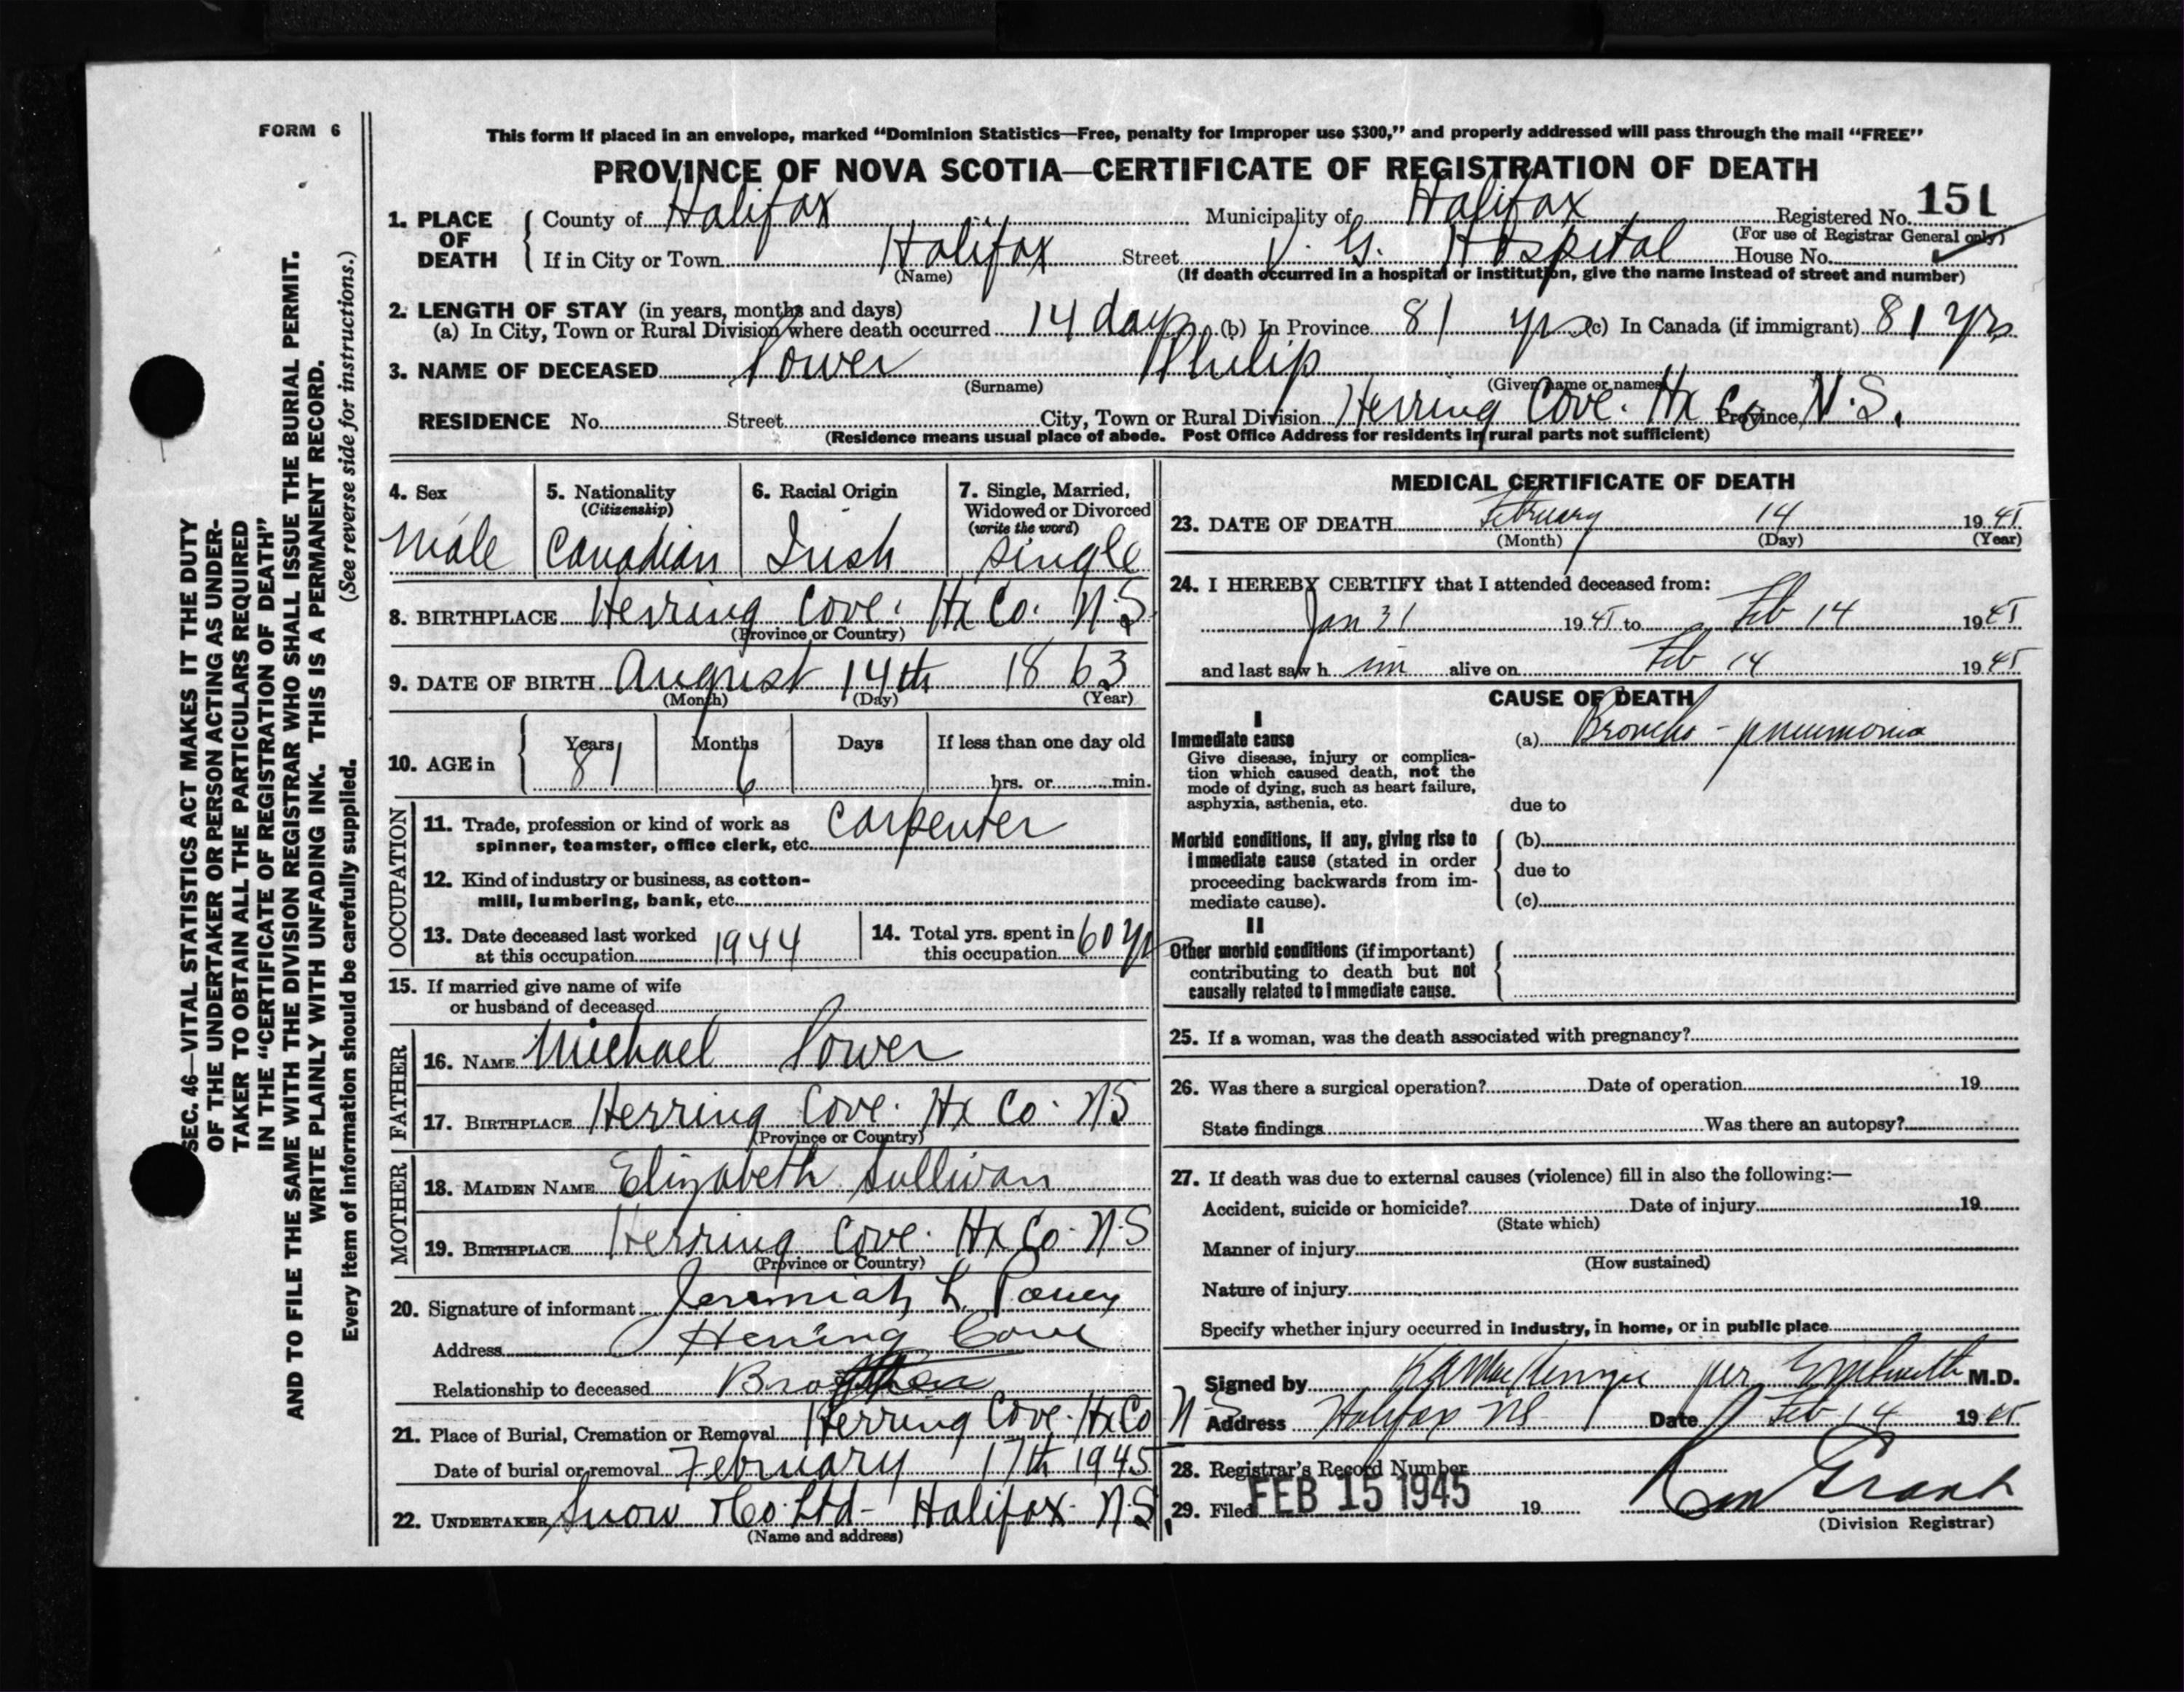 FORM 6
This form if placed in an envelope, marked “Dominion Statistics—Free, penalty for Improper use $300,” and properly addressed will pass through the mail “FREE”
PROVINCE OF NOVA SCOTIA—CERTIFICATE OF REGISTRATION OF DEATH
1. PLACE OF DEATH County of Halifax Municipality of Halifax Registered No. 151
(For use of Registrar General only)
If in City or Town Halifax Street V. G. Hospital House No.
(Name) (If death occurred in a hospital or institution, give the name instead of street and number)
2. LENGTH OF STAY (in years, months and days)
(a) In City, Town or Rural Division where death occurred 14 days (b) In Province 81 yrs (c) In Canada (if immigrant) 81 yrs
3. NAME OF DECEASED Power Philip
(Surname) (Given name or names)
RESIDENCE No. Street City, Town or Rural Division Herring Cove. Hx Co Province N.S.
(Residence means usual place of abode. Post Office Address for residents in rural parts not sufficient)
4. Sex Male
5. Nationality (Citizenship) Canadian
6. Racial Origin Irish
7. Single, Married, Widowed or Divorced (write the word) Single
8. BIRTHPLACE Herring Cove. Hx Co. N.S.
(Province or Country)
9. DATE OF BIRTH August 14th 1863
(Month) (Day) (Year)
10. AGE in Years 81 Months 6 Days If less than one day old
hrs. or min.
OCCUPATION
11. Trade, profession or kind of work as spinner, teamster, office clerk, etc. Carpenter
12. Kind of industry or business, as cotton-
mill, lumbering, bank, etc.
13. Date deceased last worked at this occupation 1944
14. Total yrs. spent in this occupation 60 yrs
15. If married give name of wife
or husband of deceased
FATHER
16. NAME Michael Power
17. BIRTHPLACE Herring Cove. Hx Co. NS
(Province or Country)
MOTHER
18. MAIDEN NAME Elizabeth Sullivan
19. BIRTHPLACE Herring Cove. Hx Co. N.S
(Province or Country)
20. Signature of informant Jeremiah L. Power
Address Herring Cove
Relationship to deceased Brother
21. Place of Burial, Cremation or Removal Herring Cove. Hx Co N S
Date of burial or removal February 17th 1945
22. UNDERTAKER Snow & Co. Ltd - Halifax. N.S.
(Name and address)
MEDICAL CERTIFICATE OF DEATH
23. DATE OF DEATH February 14 1945
(Month) (Day) (Year)
24. I HEREBY CERTIFY that I attended deceased from:
Jan 31 1945 to Feb 14 1945
and last saw him alive on Feb 14 1945
CAUSE OF DEATH
I
Immediate cause (a) Broncho-pneumonia
Give disease, injury or complica-
tion which caused death, not the
mode of dying, such as heart failure,
asphyxia, asthenia, etc. due to
Morbid conditions, if any, giving rise to (b)
immediate cause (stated in order
proceeding backwards from im- due to
mediate cause). (c)
II
Other morbid conditions (if important)
contributing to death but not
causally related to immediate cause.
25. If a woman, was the death associated with pregnancy?
26. Was there a surgical operation? Date of operation 19
State findings Was there an autopsy?
27. If death was due to external causes (violence) fill in also the following:—
Accident, suicide or homicide? Date of injury 19
(State which)
Manner of injury
(How sustained)
Nature of injury
Specify whether injury occurred in industry, in home, or in public place
Signed by per M.D.
Address Halifax NS Date Feb 14 1945
28. Registrar's Record Number
29. Filed FEB 15 1945 19 Grant
(Division Registrar)
SEC. 46—VITAL STATISTICS ACT MAKES IT THE DUTY
OF THE UNDERTAKER OR PERSON ACTING AS UNDER-
TAKER TO OBTAIN ALL THE PARTICULARS REQUIRED
IN THE “CERTIFICATE OF REGISTRATION OF DEATH”
AND TO FILE THE SAME WITH THE DIVISION REGISTRAR WHO SHALL ISSUE THE BURIAL PERMIT.
WRITE PLAINLY WITH UNFADING INK. THIS IS A PERMANENT RECORD.
Every item of information should be carefully supplied. (See reverse side for instructions.)